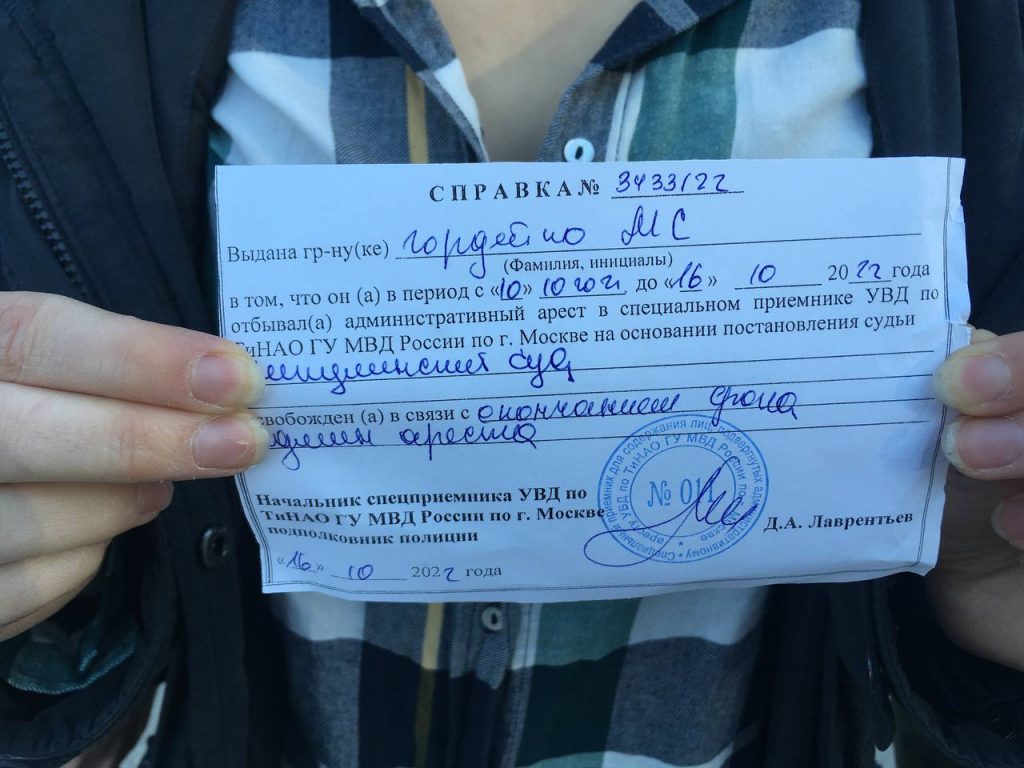 СПРАВКА № 3433/22
Выдана гр-ну(ке) Гордейко МС
(Фамилия, инициалы)
в том, что он (а) в период с «10» 10 до «16» 10 2022 года
отбывал(а) административный арест в специальном приемнике УВД по
ТиНАО ГУ МВД России по г. Москве на основании постановления судьи
суд
свобожден (а) в связи с окончанием срока
админ ареста
Начальник спецприемника УВД по
ТиНАО ГУ МВД России по г. Москве
подполковник полиции
Д.А. Лаврентьев
«16» 10 2022 года
Специальный приемник для содержания лиц, подвергнутых административному аресту
УВД по ТиНАО ГУ МВД России по г. Москве
№ 011